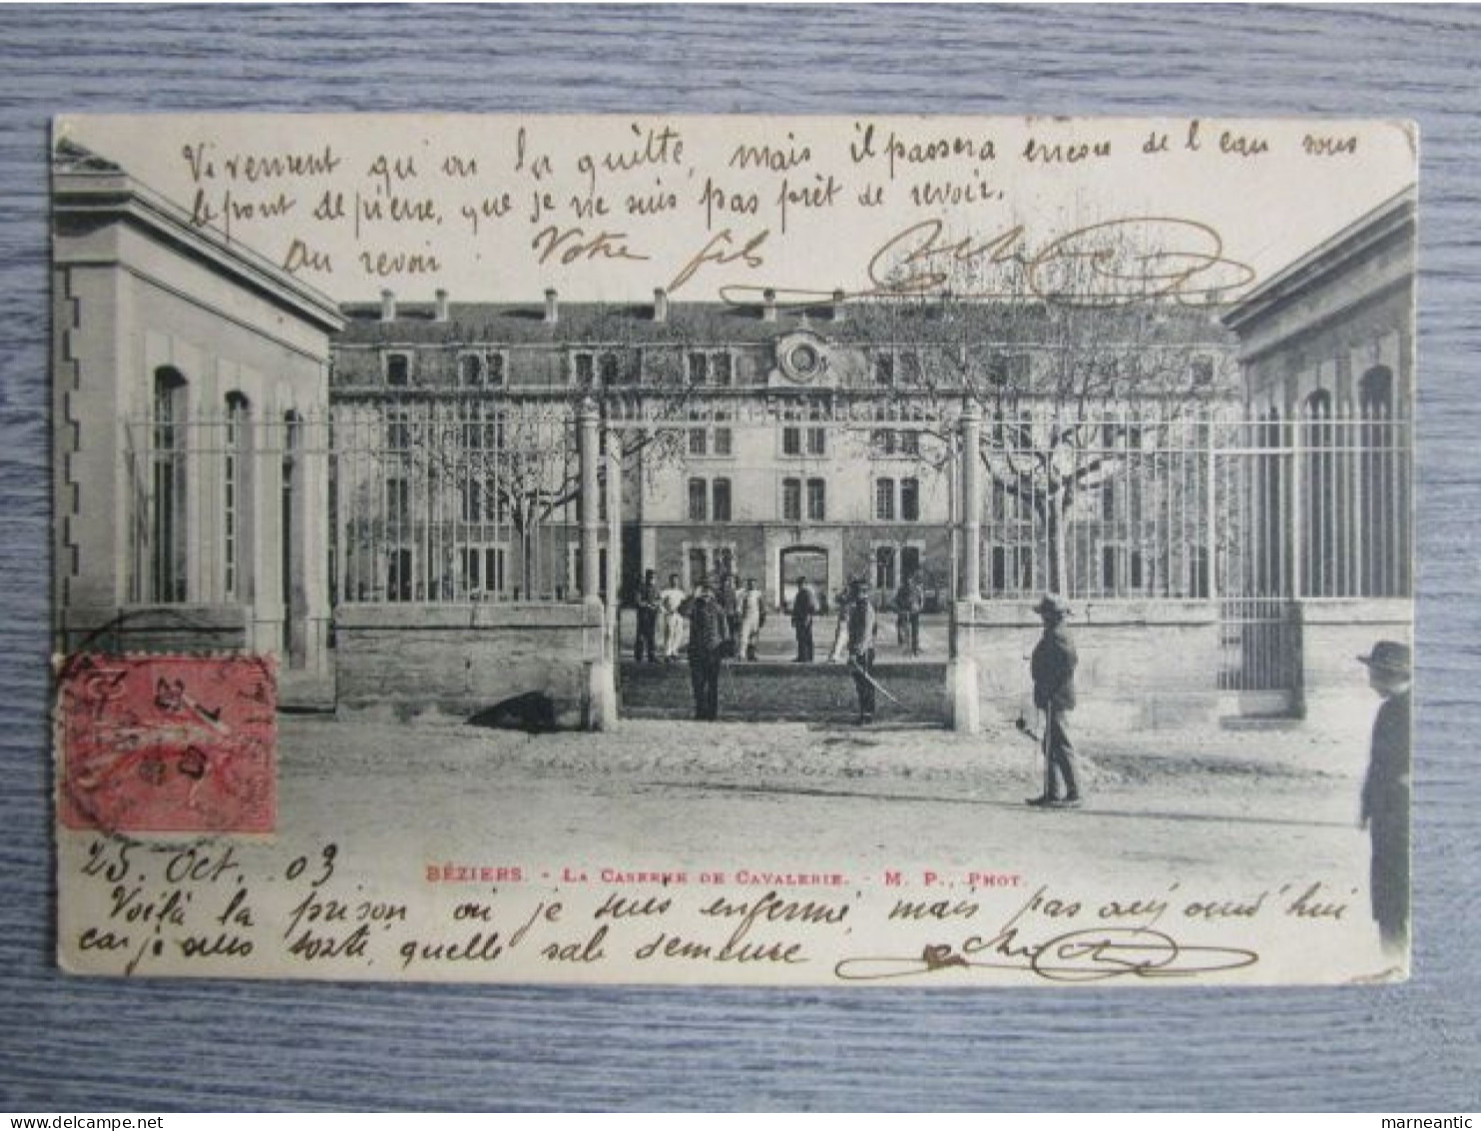 Vivement qu'on la quitte, mais il passera encore de l'eau sous
le pont de pierre, que je ne suis pas prêt de revoir.
Au revoir. Votre fils
25. Oct. 03
BÉZIERS. - LA CASERNE DE CAVALERIE. - M. P., PHOT.
Voilà la prison ou je suis enfermé, mais pas aujourd'hui
car je suis sorti, quelle sale demeure
marneantic